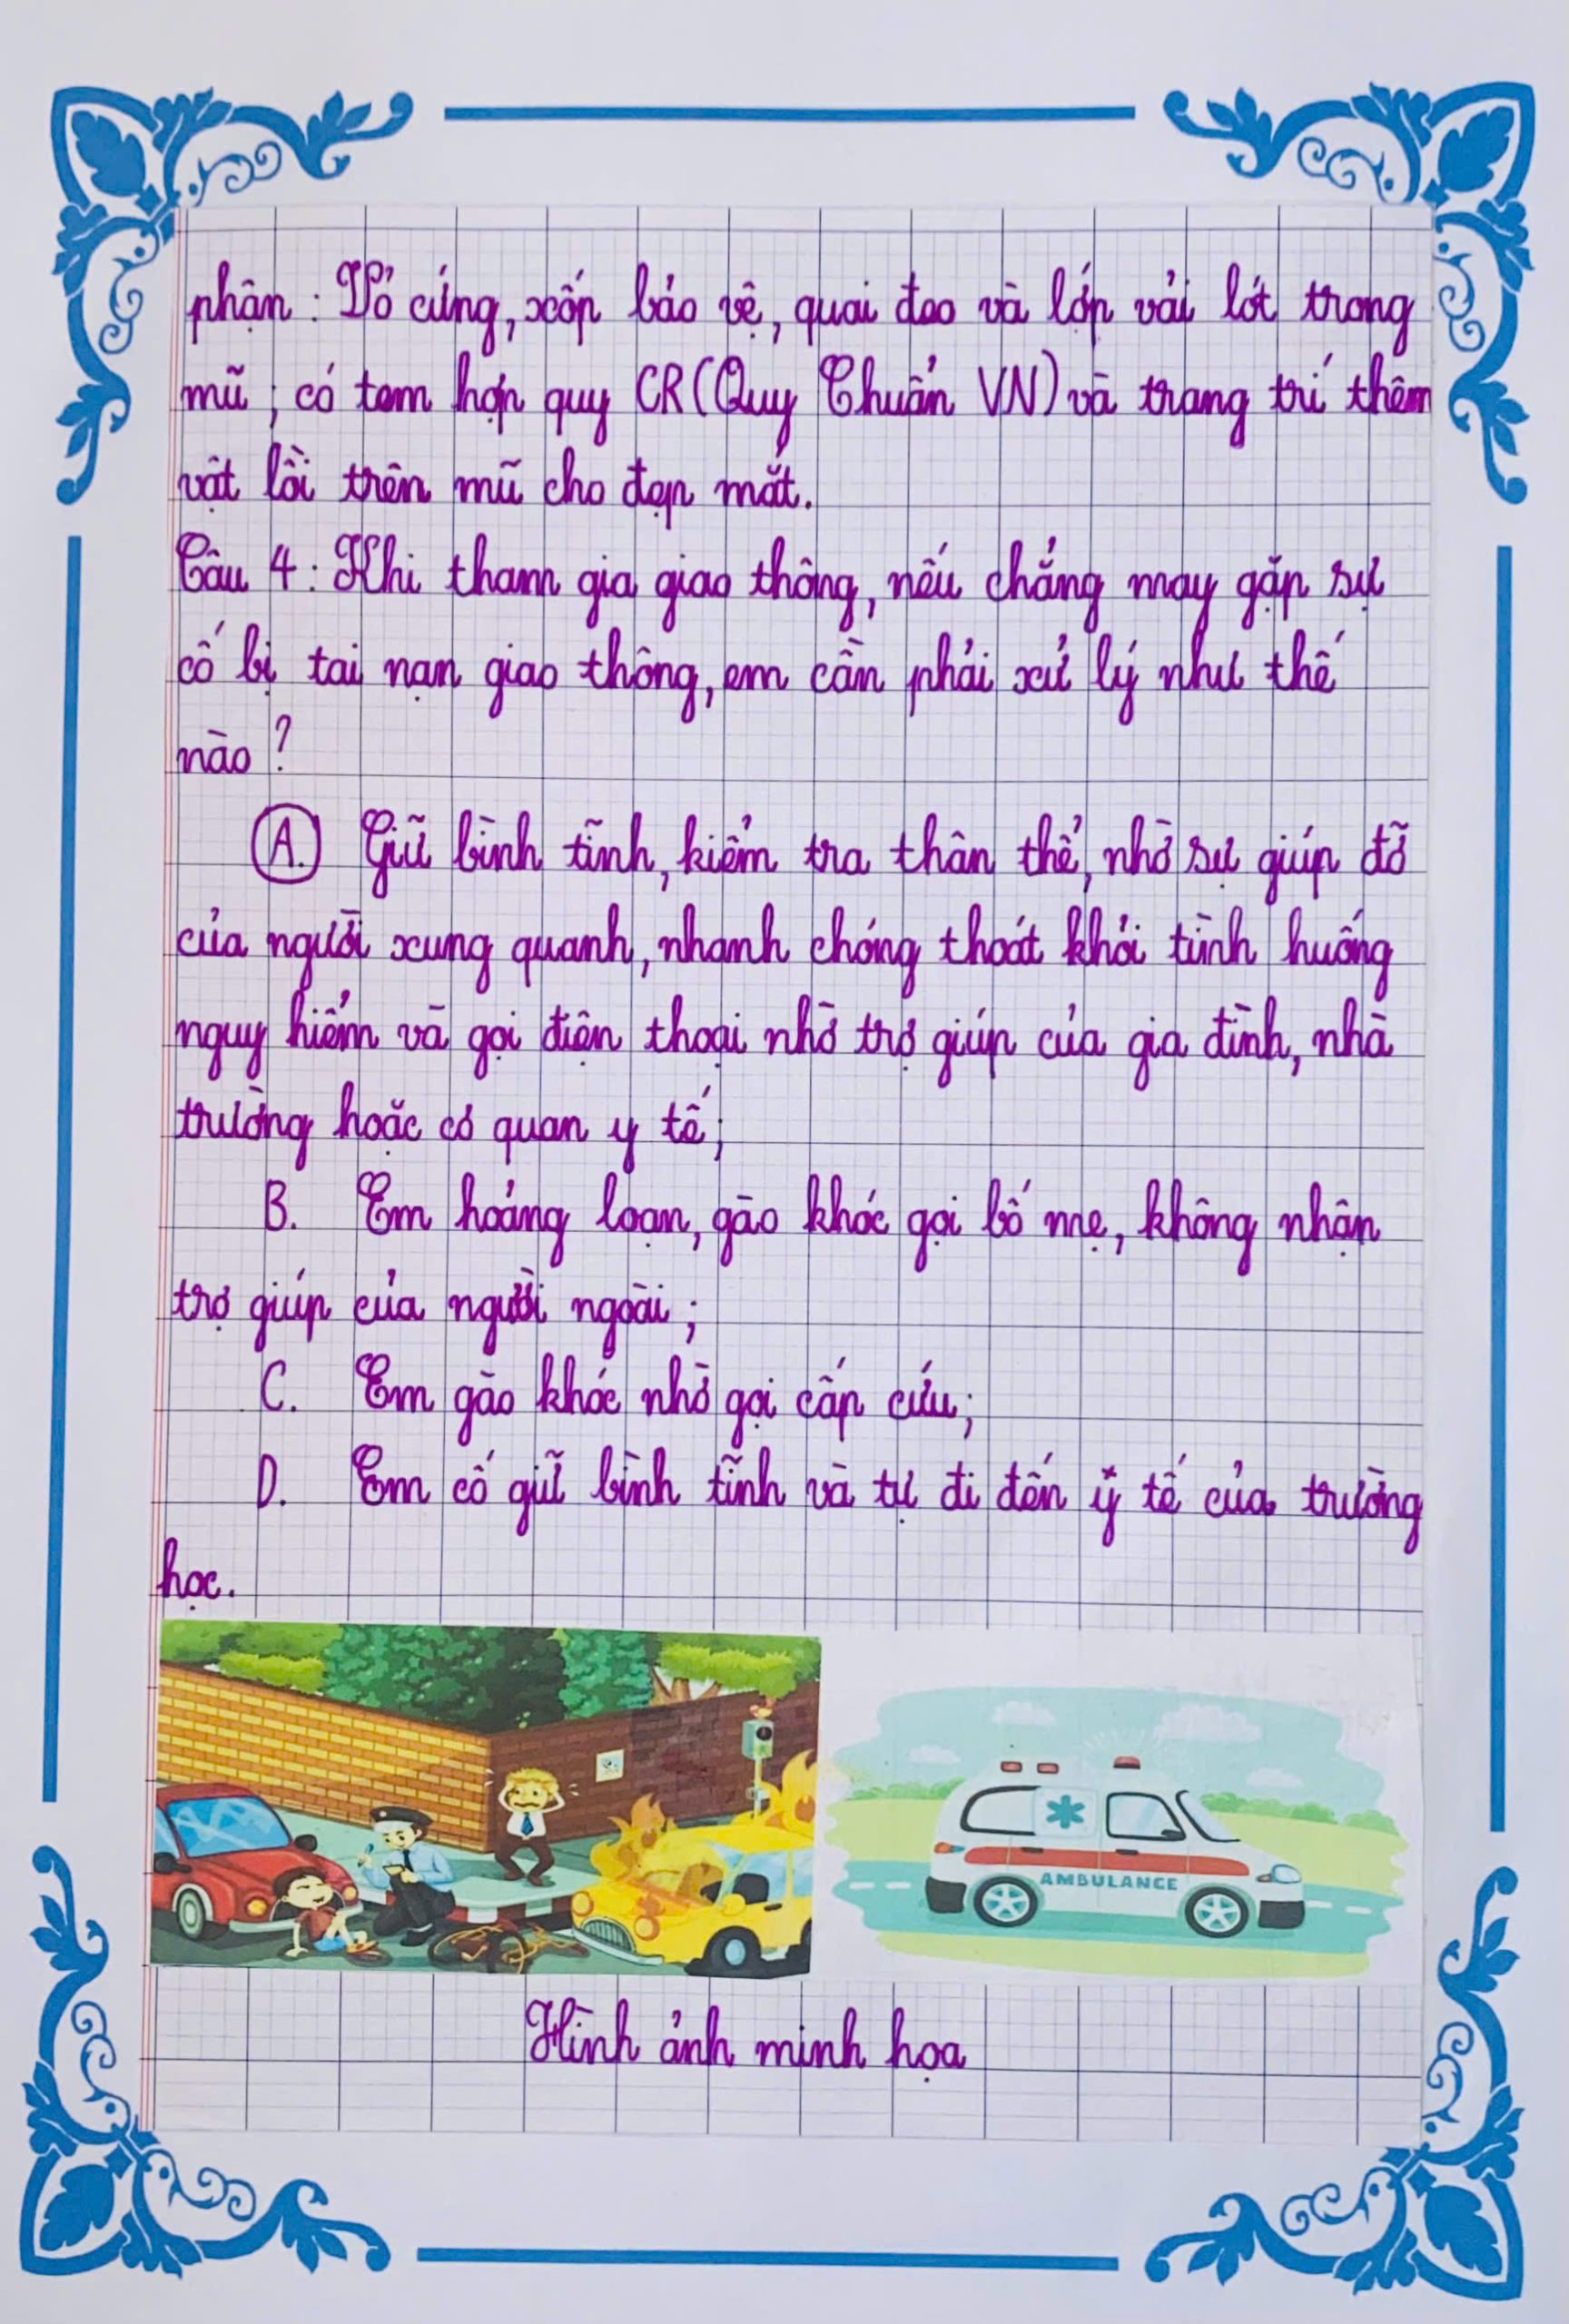 phận : Vỏ cứng, xốp bảo vệ, quai đeo và lớp vải lót trong
mũ ; có tem hợp quy CR (Quy Chuẩn VN) và trang trí thêm
vật lồi trên mũ cho đẹp mắt.
Câu 4 : Khi tham gia giao thông, nếu chẳng may gặp sự
cố bị tai nạn giao thông, em cần phải xử lý như thế
nào ?
A. Giữ bình tĩnh, kiểm tra thân thể, nhờ sự giúp đỡ
của người xung quanh, nhanh chóng thoát khỏi tình huống
nguy hiểm và gọi điện thoại nhờ trợ giúp của gia đình, nhà
trường hoặc cơ quan y tế ;
B. Em hoảng loạn, gào khóc gọi bố mẹ, không nhận
trợ giúp của người ngoài ;
C. Em gào khóc nhờ gọi cấp cứu ;
D. Em cố giữ bình tĩnh và tự đi đến y tế của trường
học.
AMBULANCE
Hình ảnh minh họa